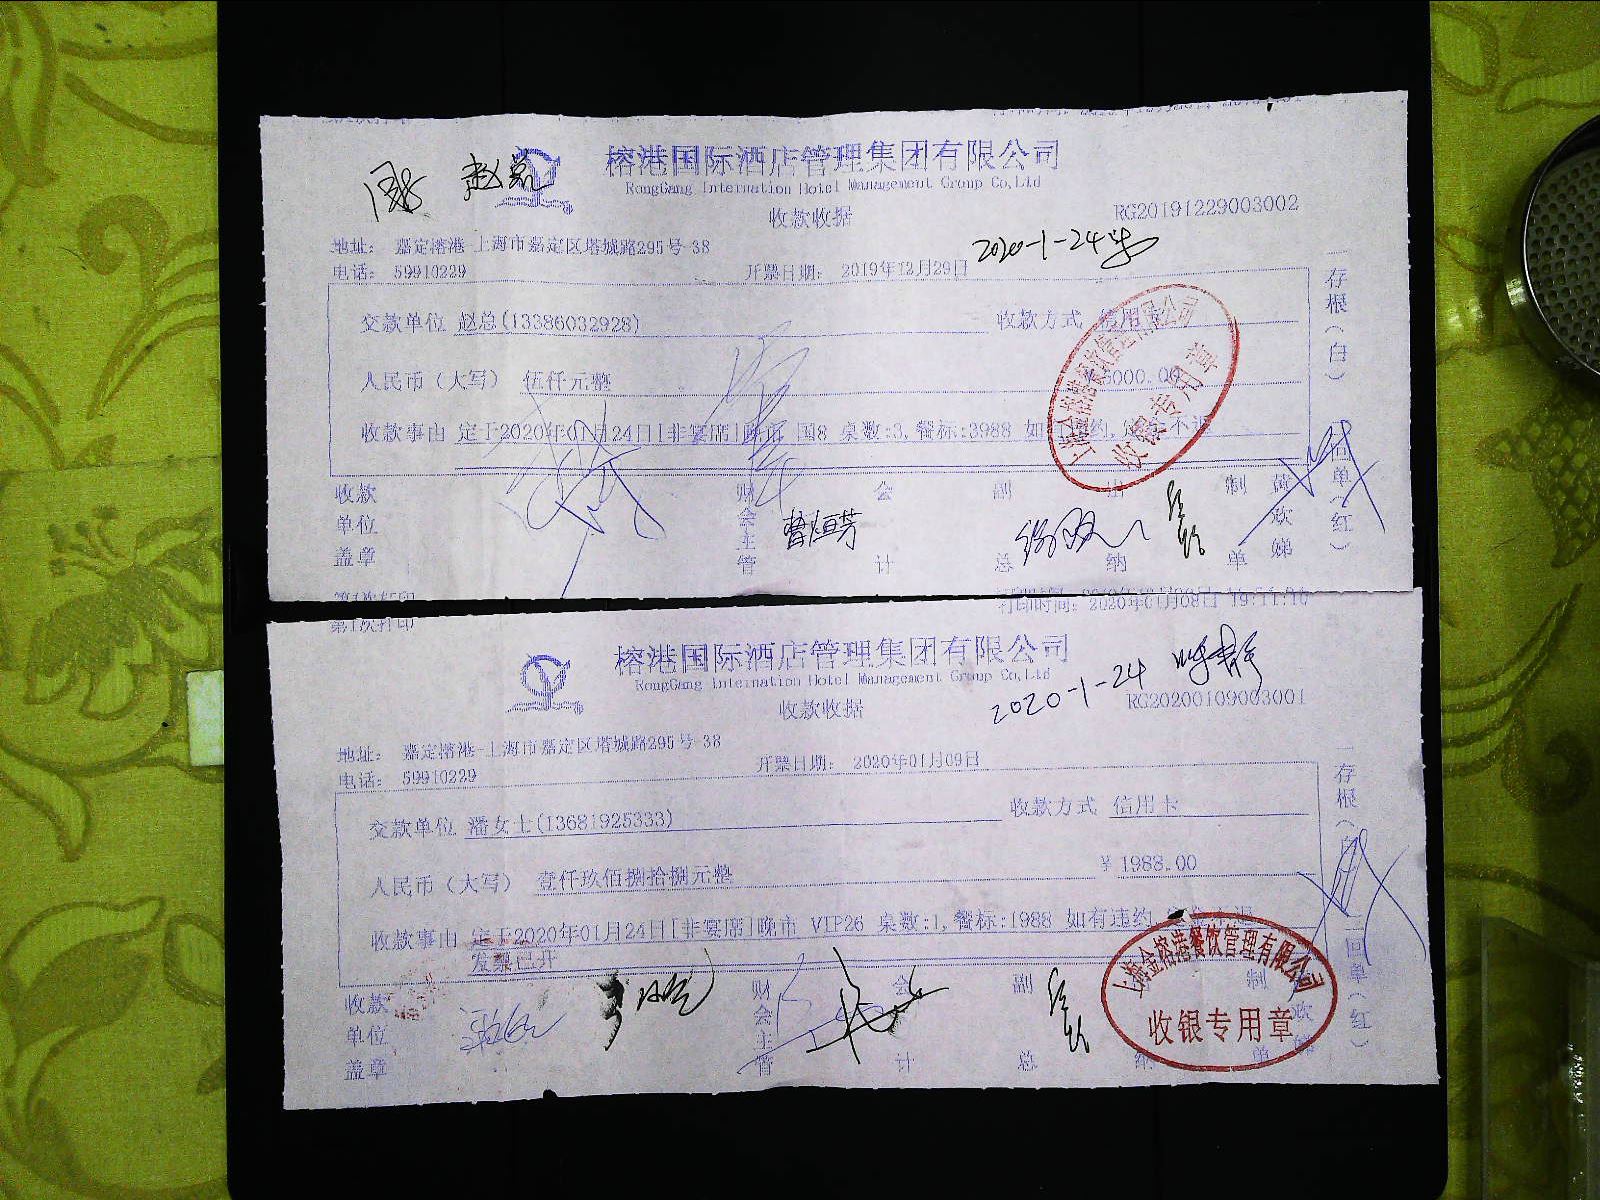 榕港国际酒店管理集团有限公司
RongGang Internation Hotel Management Group Co,Ltd
收款收据
RG20191229003002
地址： 嘉定榕港-上海市嘉定区塔城路295号-38
2020-1-24
电话： 59910229
开票日期： 2019年12月29日
交款单位 赵总(13386032928)
收款方式 信用卡
人民币（大写） 伍仟元整
5000.00
收款事由 定于2020年01月24日[非宴席]晚市 国8 桌数:3,餐标:3988 如有违约,定金不退
收款单位盖章
财会主管
会计
副总
出纳
制单
黄欢娣
一存根（白） 二回单（红）
收银专用章
第1次打印
打印时间：2020年01月08日 19:11:10
榕港国际酒店管理集团有限公司
RongGang Internation Hotel Management Group Co,Ltd
2020-1-24
收款收据
RG20200109003001
地址： 嘉定榕港-上海市嘉定区塔城路295号-38
电话： 59910229
开票日期： 2020年01月09日
交款单位 潘女士(13681925333)
收款方式 信用卡
人民币（大写） 壹仟玖佰捌拾捌元整
￥1988.00
收款事由 定于2020年01月24日[非宴席]晚市 VIP26 桌数:1,餐标:1988 如有违约,定金不退
发票已开
收款单位盖章
财会主管
会计
副总
出纳
制单
一存根（白） 二回单（红）
上海金榕港餐饮管理有限公司
收银专用章